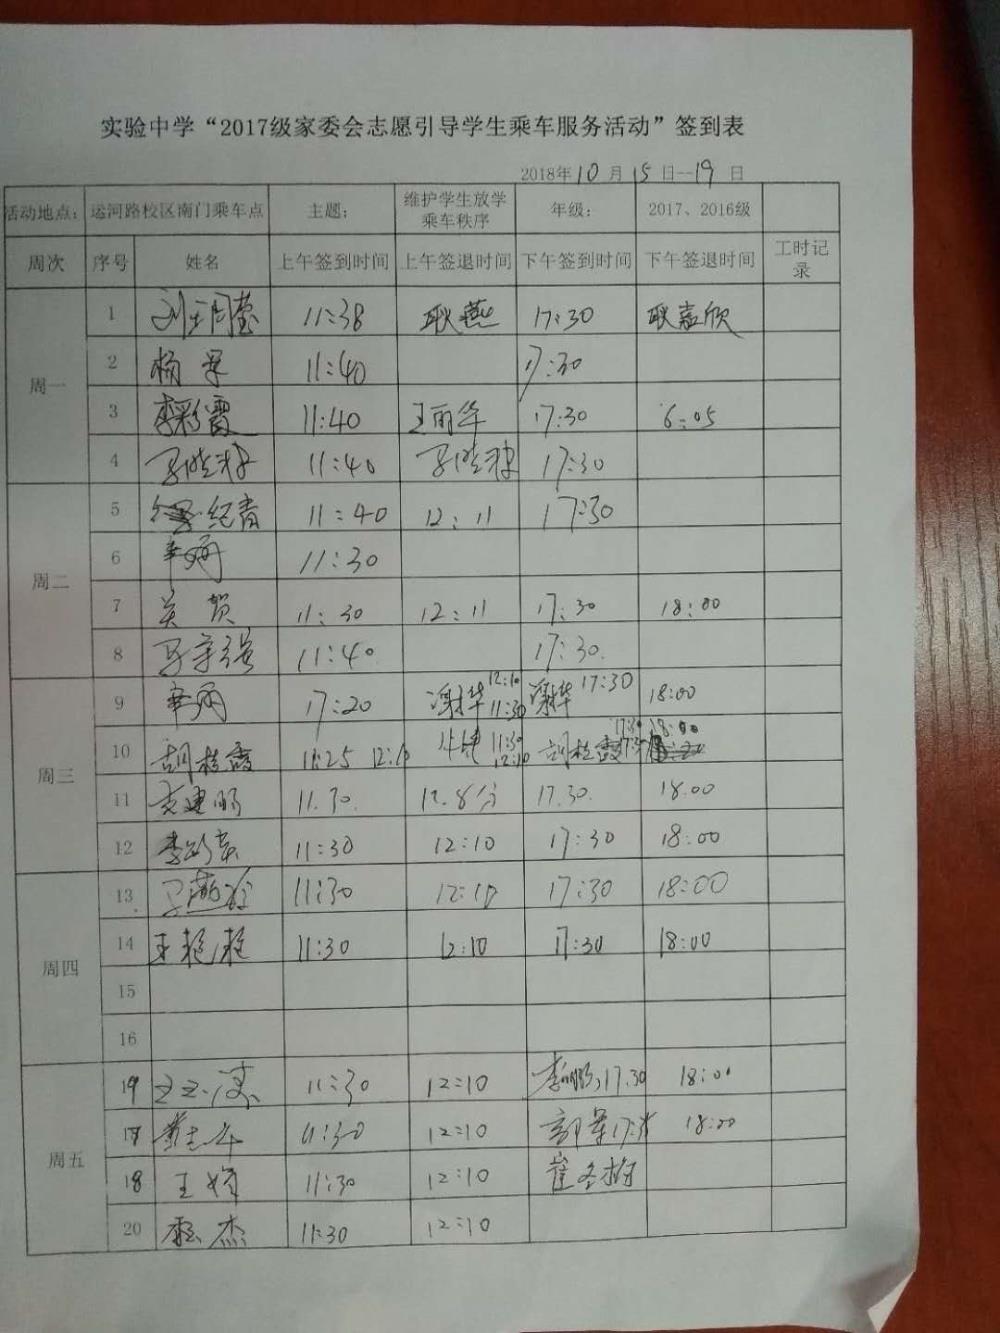 实验中学“2017级家委会志愿引导学生乘车服务活动”签到表
2018年10月15日--19日
活动地点: 运河路校区南门乘车点 主题: 维护学生放学乘车秩序 年级: 2017、2016级
周次 序号 姓名 上午签到时间 上午签退时间 下午签到时间 下午签退时间 工时记录
周一
1 11:38 耿燕 17:30 耿嘉欣
2 杨 11:40 17:30
3 李彩霞 11:40 王丽华 17:30 6:05
4 11:40 17:30
周二
5 纪青 11:40 12:11 17:30
6 11:30
7 11:30 12:11 17:30 18:00
8 11:40 17:30
周三
9 17:20 谢华 12:10 11:30 谢华 17:30 18:00
10 胡桂霞 11:25 12:10 11:30 12:10 胡桂霞 17:30 18:00
11 11.30. 12.8分 17.30. 18.00
12 11:30 12:10 17:30 18:00
周四
13 11:30 12:10 17:30 18:00
14 王艳艳 11:30 12:10 17:30 18:00
15
16
周五
19 11:30 12:10 17:30 18:00
11:30 12:10 18:00
18 王娟 11:30 12:10 崔冬梅
20 杰 11:30 12:10